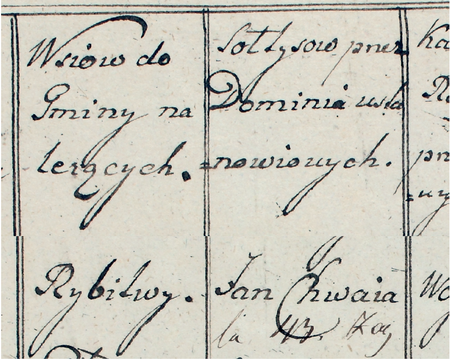 Wsiów do
Gminy na
lerzących.
Sołtysow przez
Dominia usta
=nowionych.
Ka
pr
Rybitwy.
Jan Chwaia
la 43.